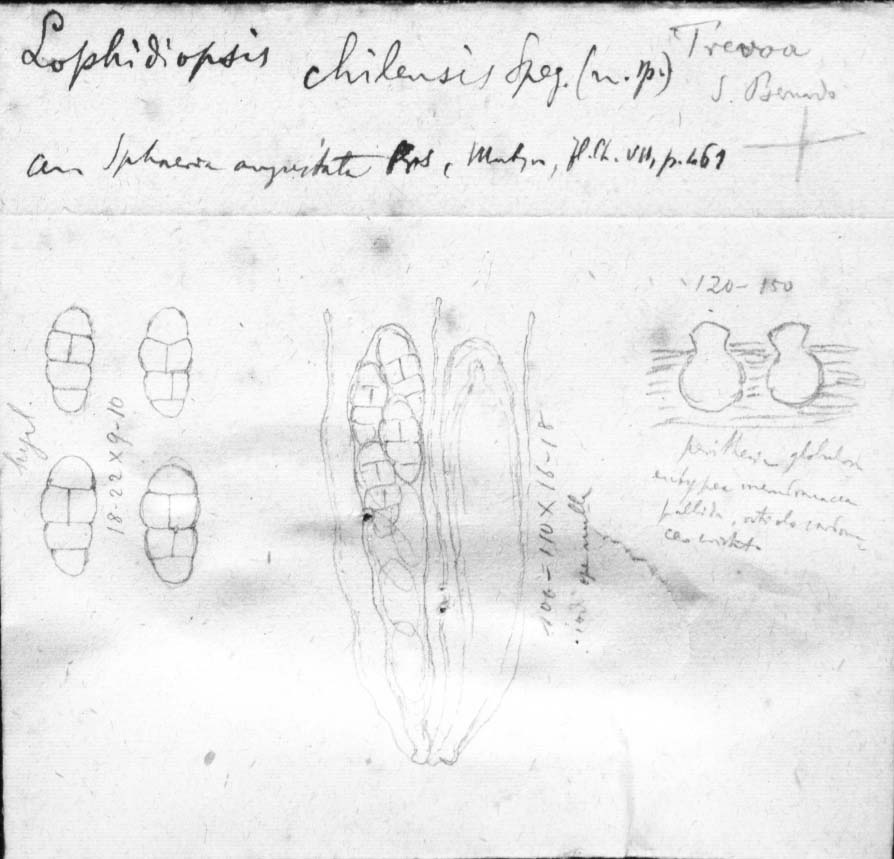 Lophidiopsis chilensis Speg. (n. sp.) Trevoa
S. Bernardo
an Sphaeria angustata Prs, Montgn, fl. Ch. VII, p. 469
120-150
hyal.
18-22 x 9-10
100 = 110 x 16-18
iodi ope nulle
perithecia globulosa
entypea membranacea
pallida, ostiolo carbona-
ceo cristato